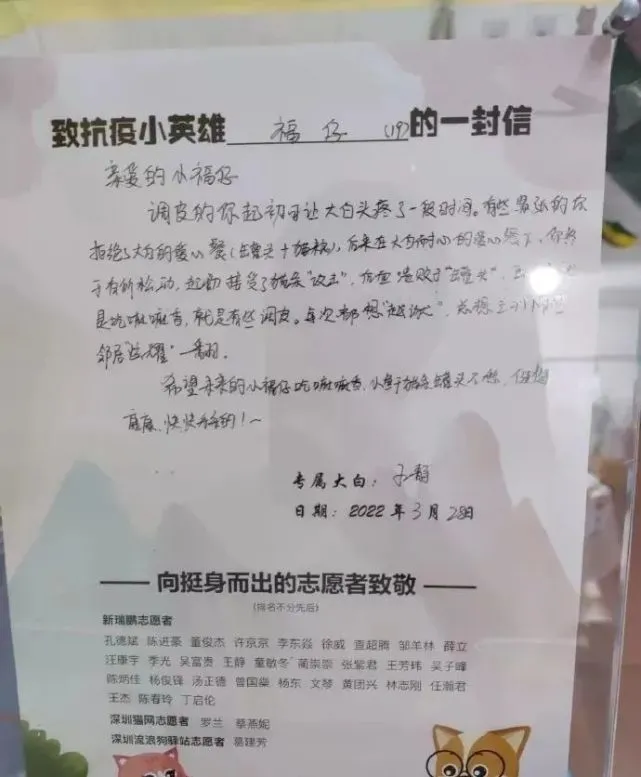 致抗疫小英雄 福仔 (19) 的一封信
亲爱的小福仔
调皮的你起初可让大白头疼了一段时间。有些紧张的你
拒绝了大白的爱心餐(罐头+猫粮),后来在大白耐心的爱心餐下,你终
于有所松动,起初接受了猫条"攻击",后面
是吃嘛嘛香,就是有些调皮。每次都想"越狱",总想
邻居"炫耀"一翻。
希望未来的小福仔吃嘛嘛香,小鱼干猫条罐头不愁,
快快乐乐的!~
专属大白:子静
日期:2022年3月28日
向挺身而出的志愿者致敬
(排名不分先后)
新瑞鹏志愿者
孔德斌 陈进豪 董俊杰 许京京 李东焱 徐威 查超腾 邹羊林 薛立
汪康宇 李光 吴富贵 王静 童敏冬 蔺崇崇 张紫君 王芳玮 吴子峰
陈炳佳 杨俊锋 汤正德 曾国燊 杨东 文琴 黄团兴 林志刚 任瀚君
王杰 陈春玲 丁启伦
深圳猫网志愿者 罗兰 蔡燕妮
深圳流浪狗驿站志愿者 葛建芳